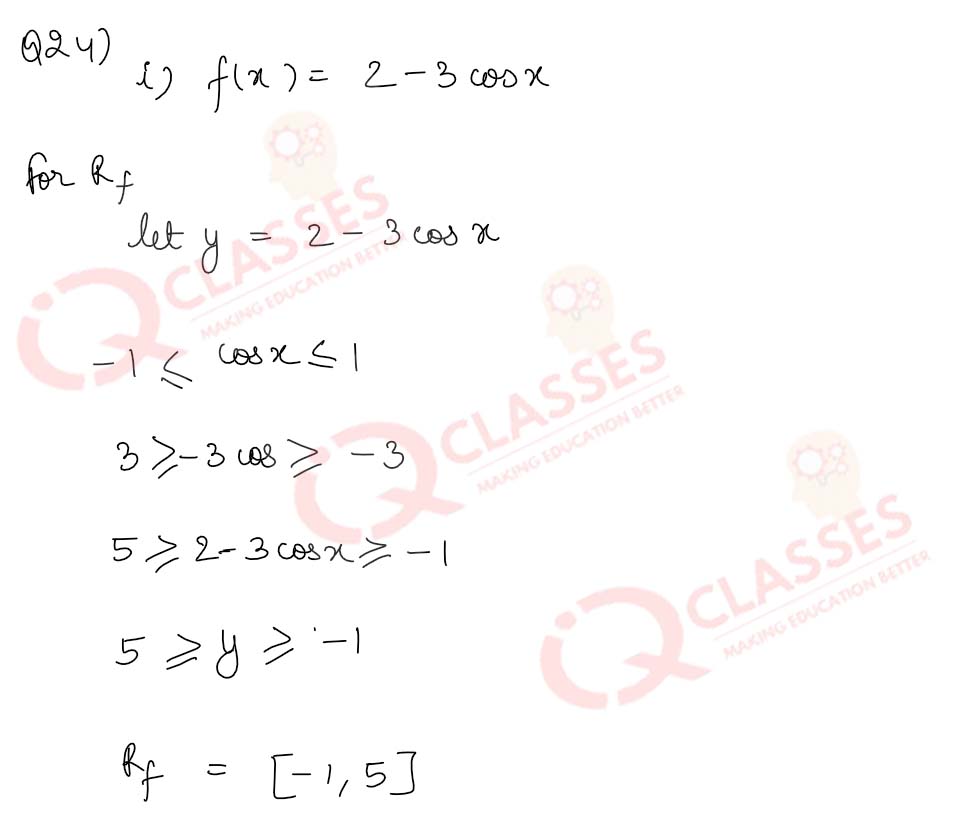 Q24)
i) f(x) = 2 - 3 cos x
for Rf
let y = 2 - 3 cos x
-1 ≤ cos x ≤ 1
3 ≥ -3 cos ≥ -3
5 ≥ 2 - 3 cos x ≥ -1
5 ≥ y ≥ -1
Rf = [-1, 5]
iQ CLASSES
MAKING EDUCATION BETTER
iQ CLASSES
MAKING EDUCATION BETTER
iQ CLASSES
MAKING EDUCATION BETTER